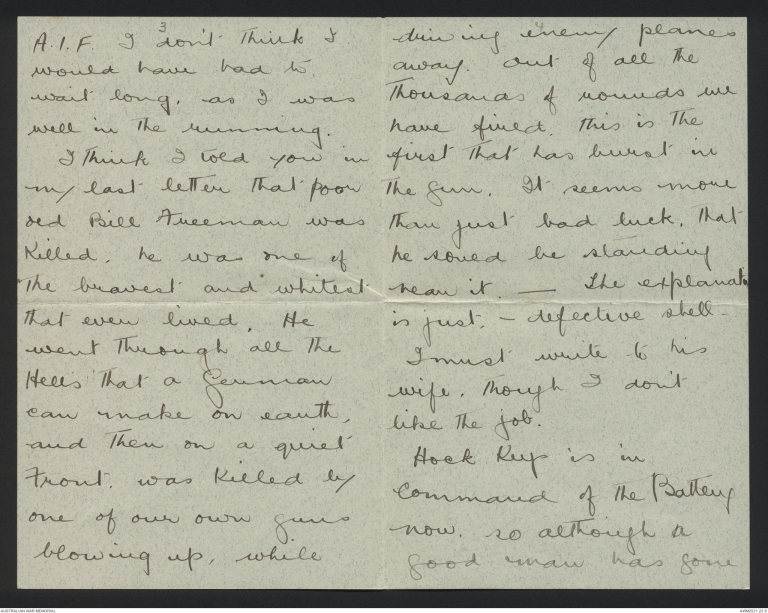 3
A.I.F. I don't think I
would have had to
wait long, as I was
well in the running.
I think I told you in
my last letter that poor
old Bill Freeman was
Killed, he was one of
the bravest and whitest
that ever lived. He
went through all the
Hells that a German
can make on earth,
and then on a quiet
Front. was Killed by
one of our own guns
blowing up, while
4
driving enemy planes
away. Out of all the
thousands of rounds we
have fired. this is the
first that has burst in
the gun. It seems more
than just bad luck, that
he should be standing
near it. — The explanation
is just, — defective shell -
I must write to his
wife, though I don't
like the job.
is in
Command of the Battery
now. so although a
good man has gone
AUSTRALIAN WAR MEMORIAL